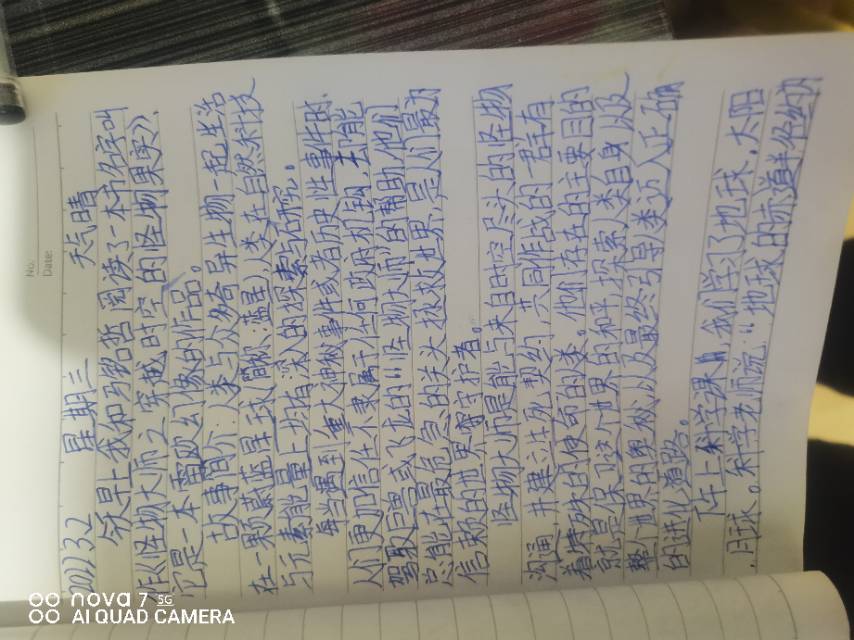 No.
Date:
2022 3.2 星期三 天气晴
今天早上我和马铭哲阅读了一本书名字叫
作《怪物大师之穿越时空的怪物果实》,
它是一本雷欧幻像的作品。
故事简介:人类与众多奇异生物一起生活
在一颗蔚蓝星球(简称:蓝星)人类在自然科技
与元素能量上均有深入的探索与研究。
每当遇到重大函械事件或者历史性事件时,
人们更加信任不隶属于任何政府机构,却能
驾驭巨兽或飞龙的"怪物大师"的帮助,他们
总能在最危急的关头拯救世界,是人们最为
信赖的世界守护者。
怪物大师是能与来自时空尽头的怪物
沟通,并建立起契约,共同作战的一群有
着特殊的使命的人类。他们存在的主要目的
就是保卫这个世界的和平,探索人类自身以及
整个世界的奥秘以及最终引导人类迈入正确
的进化道路。
下午上科学课时,我们学习了地球,太阳
,月球。科学老师说:"地球的赤道半径约为
nova 7 5G
AI QUAD CAMERA